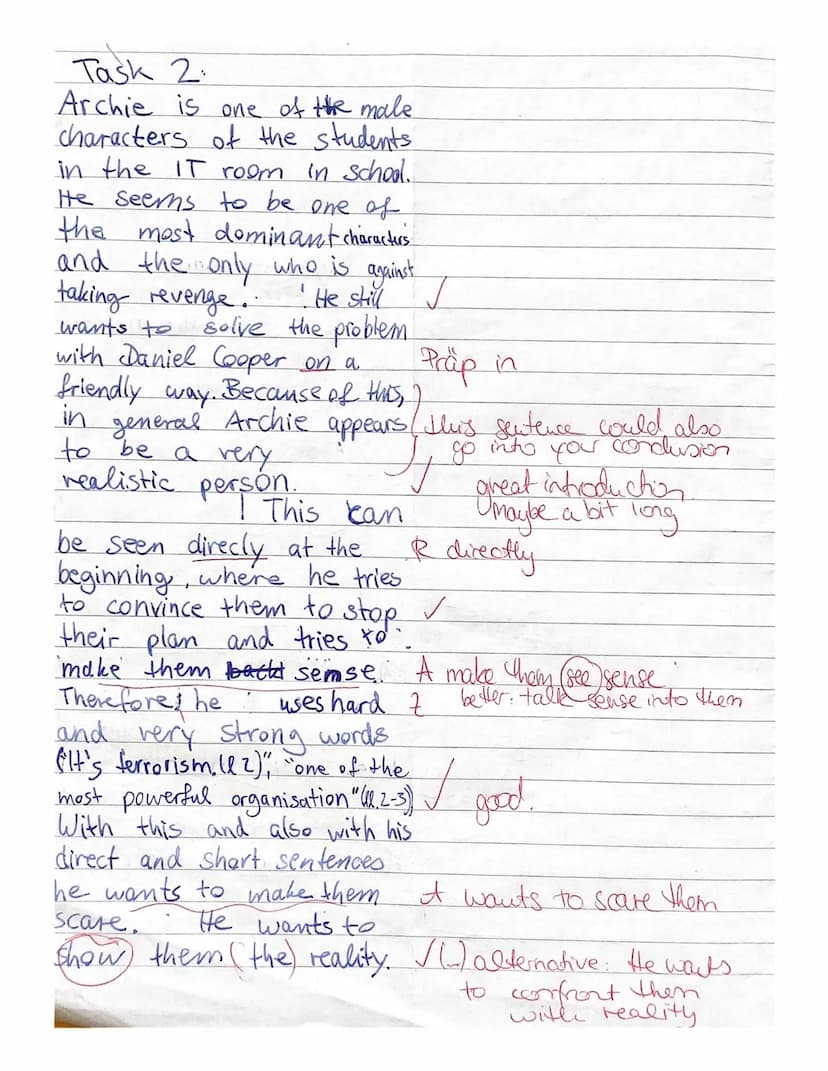 Task 2:
Archie is one of the male
characters of the students
in the IT room in school.
He seems to be one of
the most dominant characters
and the only who is against
taking revenge. He still ✓
wants to solve the problem
with Daniel Cooper on a Präp in
friendly way. Because of this,
in general Archie appears this sentence could also
to be a very go into your conclusion
realistic person. ✓ great introduction
maybe a bit long
This can
be seen direcly at the R directly
beginning, where he tries
to convince them to stop ✓
their plan and tries to
make them sense. A make them see sense
better: talk sense into them
Therefore, he uses hard Z
and very strong words
("It's terrorism.(l 2)", "one of the
most powerful organisation"(ll. 2-3)) ✓ good.
With this and also with his
direct and short sentences
he wants to make them A wants to scare them
scare. He wants to
show them (the) reality. ✓(-) alternative: He wants
to confront them
with reality